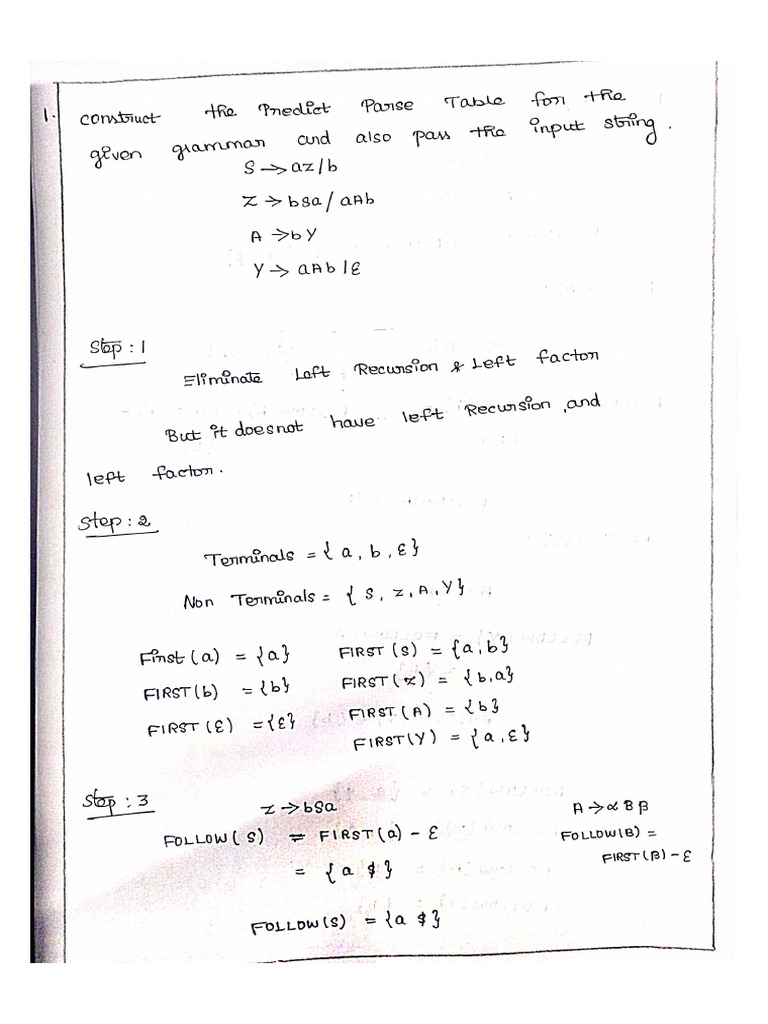 1. construct the Predict Parse Table for the
given grammar and also pass the input string.
S → az/b
Z → bsa/aAb
A → bY
Y → aAb|ε
Step : 1
Eliminate Left Recursion & Left factor
But it doesnot have left Recursion, and
left factor.
Step : 2
Terminals = {a, b, ε}
Non Terminals = {S, z, A, Y}
First(a) = {a} FIRST(S) = {a, b}
FIRST(b) = {b} FIRST(z) = {b,a}
FIRST(ε) = {ε} FIRST(A) = {b}
FIRST(Y) = {a, ε}
Step : 3 Z → bSa A → α B β
FOLLOW(S) = FIRST(a) - ε FOLLOW(B) =
= {a $} FIRST(β) - ε
FOLLOW(S) = {a $}